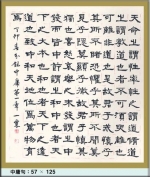 天命之謂性率性之謂道修道
之謂教道也者不可須臾離也
可離非道也是故君子戒慎乎
其所不睹恐懼乎其所不聞莫
見乎隱莫顯乎微故君子慎其
獨也喜怒哀樂之未發謂之中
發而皆中節謂之和中也者天
下之大本也和也者天下之達
道也致中和天地位焉萬物育
焉
中庸句：57 × 125